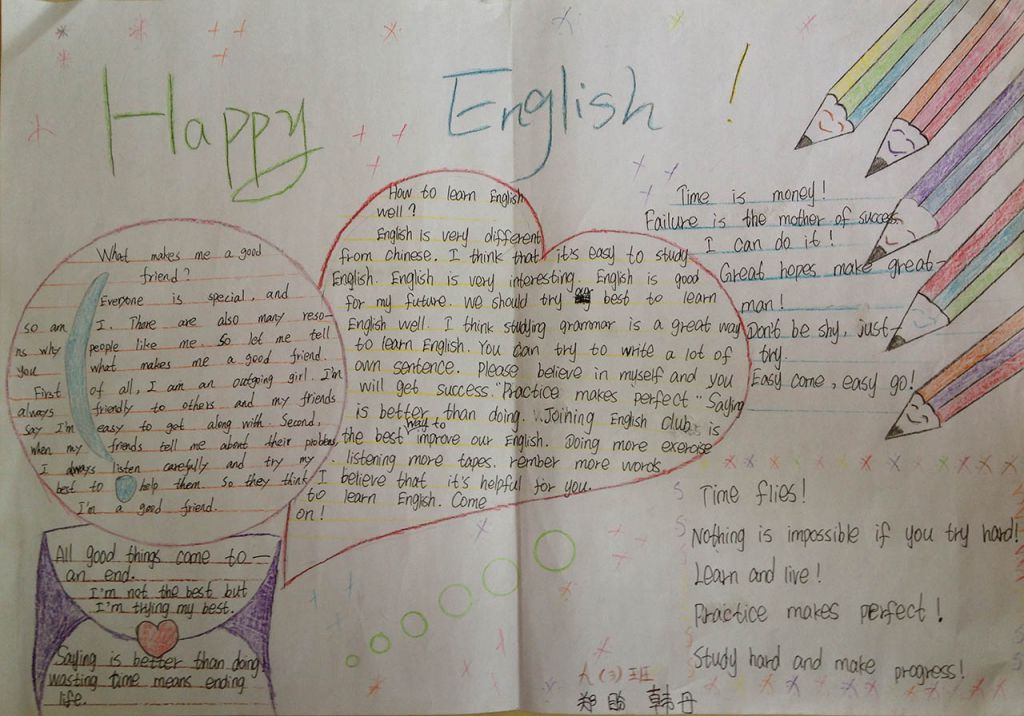 Happy English!
What makes me a good
friend?
Everyone is special, and
so am I. There are also many reso-
ns why people like me. So let me tell
you what makes me a good friend.
First of all, I am an outgoing girl. I'm
always friendly to others and my friends
say I'm easy to get along with. Second,
when my friends tell me about their problem,
I always listen carefully and try my
best to help them. So they think
I'm a good friend.
How to learn English
well?
English is very different
from chinese. I think that it's easy to study
English. English is very interesting. English is good
for my future. We should try best to learn
English well. I think studying grammar is a great way
to learn English. You can try to write a lot of
own sentence. Please believe in myself and you
will get success. "Practice makes perfect" "Saying
is better than doing." Joining English club is
the best way to improve our English. Doing more exercise
listening more tapes. rember more words.
I believe that it's helpful for you.
to learn English. Come
on!
Time is money!
Failure is the mother of success
I can do it!
Great hopes make great-
man!
Don't be shy, just-
try.
Easy come, easy go!
All good things come to-
an end.
I'm not the best but
I'm trying my best.
Saying is better than doing
wasting time means ending
life.
Time flies!
Nothing is impossible if you try hard!
Learn and live!
Practice makes perfect!
Study hard and make progress!
(3)班
郑 韩丹